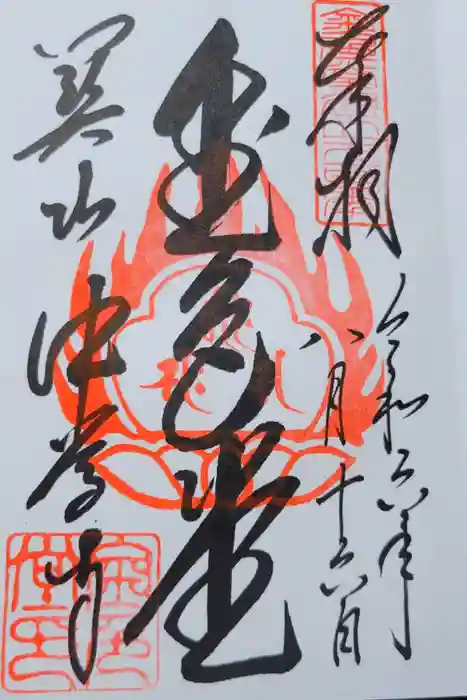 奉拝
令和六年
八月十六日
金色堂
関山
中尊寺